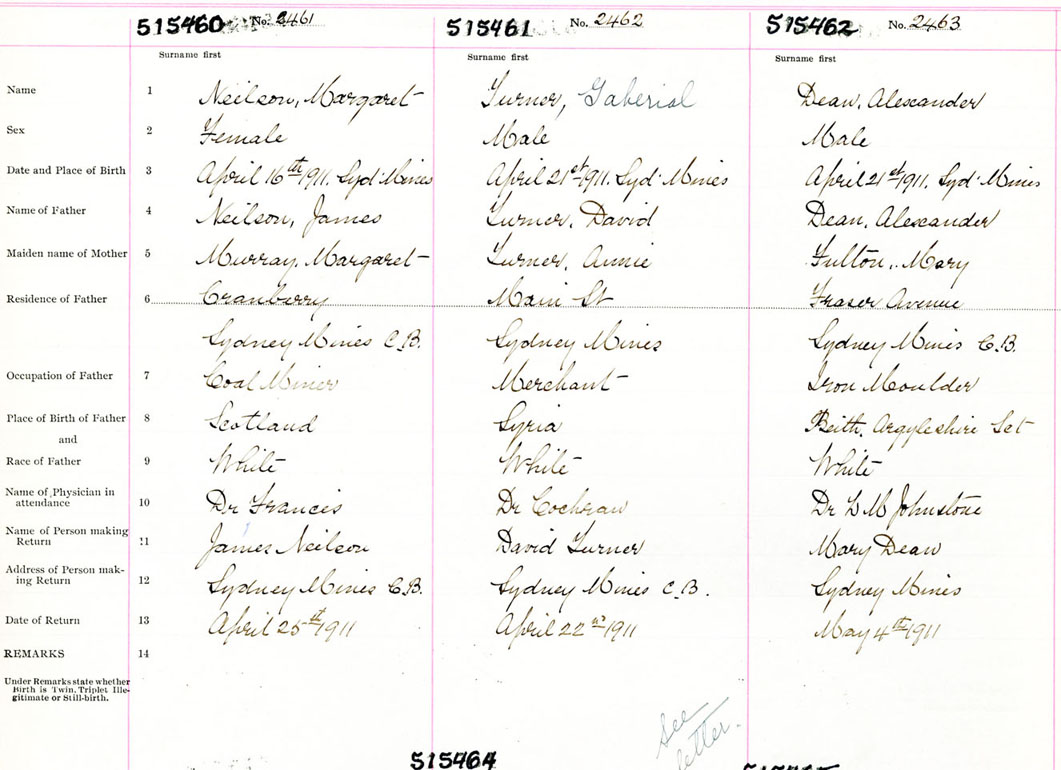 515460 No. 2461 515461 No. 2462 515462 No. 2463
Surname first Surname first Surname first
Name 1 Neilson, Margaret Turner, Gaberial Dean, Alexander
Sex 2 Female Male Male
Date and Place of Birth 3 April 16th 1911. Syd. Mines April 21st 1911. Syd. Mines April 21st 1911. Syd. Mines
Name of Father 4 Neilson, James Turner, David Dean, Alexander
Maiden name of Mother 5 Murray, Margaret Turner, Annie Fulton, Mary
Residence of Father 6 Cranberry Main St Fraser Avenue
Sydney Mines C.B. Sydney Mines Sydney Mines C.B.
Occupation of Father 7 Coal Miner Merchant Iron Moulder
Place of Birth of Father 8 Scotland Syria Beith, Argyleshire Sct
and
Race of Father 9 White White White
Name of Physician in
attendance 10 Dr Francis Dr Cochran Dr L M Johnstone
Name of Person making
Return 11 James Neilson David Turner Mary Dean
Address of Person mak-
ing Return 12 Sydney Mines C.B. Sydney Mines C.B. Sydney Mines
Date of Return 13 April 25th 1911 April 22nd 1911 May 4th 1911
REMARKS 14
Under Remarks state whether
Birth is Twin, Triplet Ille-
gitimate or Still-birth.
See
letter.
515464